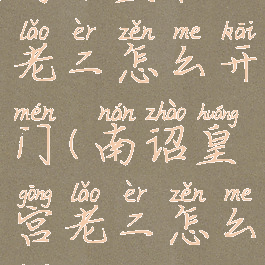 lǎo èr zěn me kāi
老二怎么开
mén nán zhào huáng
门(南诏皇
gōng lǎo èr zěn me
宫老二怎么